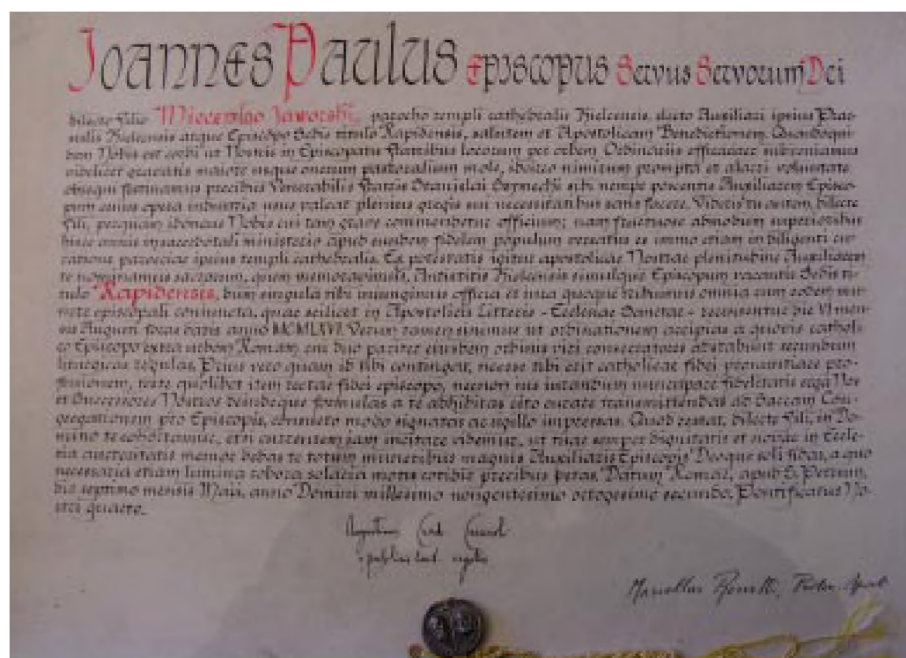 Joannes Paulus Episcopus Servus Servorum Dei
dilecto filio Miecislao Jaworski, parocho templi cathedralis Kielcensis, dicto Auxiliari ipsius Prae-
sulis Kielcensis atque Episcopo Sedis titulo Rapidensis, salutem et Apostolicam Benedictionem. Quandoqui-
dem Nobis est cordi ut Nostris in Episcopatu Fratribus locorum per orbem Ordinariis efficaciter subveniamus
videlicet gravatis maiore usque onerum pastoralium mole, idcirco nimirum prompta et alacri voluntate
obsequi festinamus precibus Venerabilis Fratris Stanislai Szymecki sibi nempe poscentis Auxiliarem Episco-
pum cuius opera industria usus valeat plenius gregis sui necessitatibus satis facere. Videris tu autem, dilecte
fili, perquam idoneus Nobis cui tam grave commendetur officium; nam fructuose admodum superioribus
hisce annis in sacerdotali ministerio apud eundem fidelem populum versatus es immo etiam in diligenti cu-
ratione paroeciae ipsius templi cathedralis. Ex potestatis igitur apostolicae Nostrae plenitudine Auxiliarem
te nominamus sacrorum, quem memoravimus, Antistitis Kielcensis simulque Episcopum vacantis Sedis ti-
tulo Rapidensis, dum singula tibi iniungimus officia et iura quoque tribuimus omnia cum eodem mu-
nere episcopali coniuncta, quae scilicet in Apostolicis Litteris - Ecclesiae Sanctae - recensentur die VI men-
sis Augusti foras datis anno MCMLXVI. Verum tamen sinimus ut ordinationem accipias a quovis catholi-
co Episcopo extra urbem Romam cui duo pariter eiusdem ordinis viri consecratores adstabunt secundum
liturgicas regulas. Prius vero quam id tibi continget, necesse tibi erit catholicae fidei pronuntiare pro-
fessionem, teste quolibet item rectae fidei episcopo, necnon ius iurandum nuncupare fidelitatis erga Nos
et Successores Nostros deindeque formulas a te adhibitas cito curate transmittendas ad Sacram Con-
gregationem pro Episcopis, consueto modo signatas ac sigillo impressas. Quod restat, dilecte fili, in Do-
mino te cohortamur, etsi currentem jam incitare videmur, ut tuae semper dignitatis et novae in Eccle-
sia auctoritatis memor dedas te totum muneribus magnis Auxiliaris Episcopi Deoque soli fidas, a quo
necessaria etiam lumina robora solacia motis cordis precibus petas. Datum Romae, apud S. Petrum,
die septimo mensis Maii, anno Domini millesimo nongentesimo octogesimo secundo, Pontificatus No-
stri quarto.